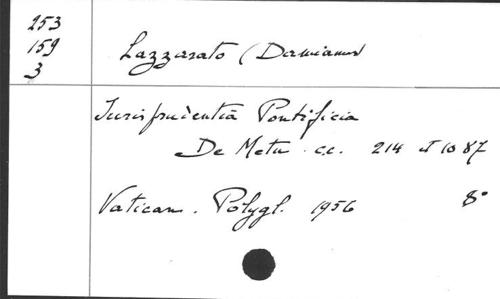 253
159
3
Lazzarato (Damianus)
Jurisprudentia Pontificia
De Metu cc. 214 et 1087
Vatican. Polygl. 1956 8°